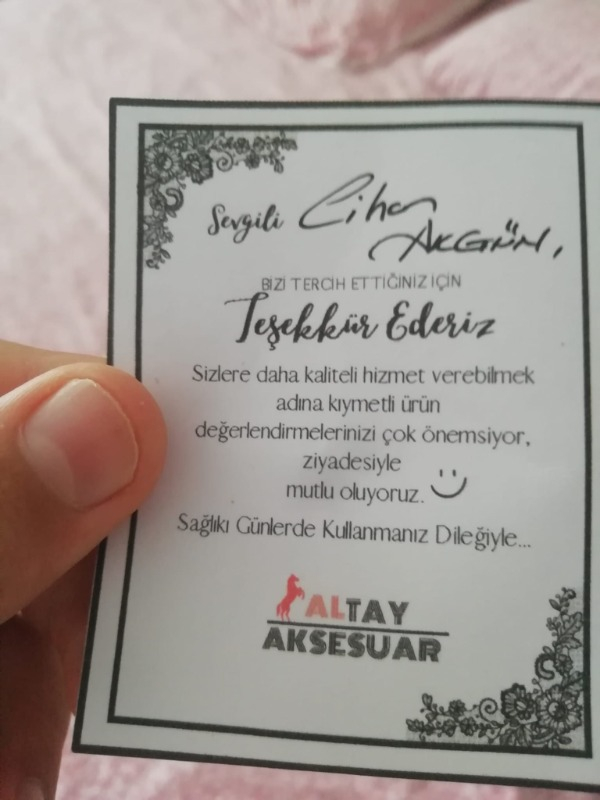 Sevgili Cihan
AKGÜN,
BİZİ TERCİH ETTİĞİNİZ İÇİN
Teşekkür Ederiz
Sizlere daha kaliteli hizmet verebilmek
adına kıymetli ürün
değerlendirmelerinizi çok önemsiyor,
ziyadesiyle
mutlu oluyoruz.
Sağlıkı Günlerde Kullanmanız Dileğiyle...
ALTAY
AKSESUAR